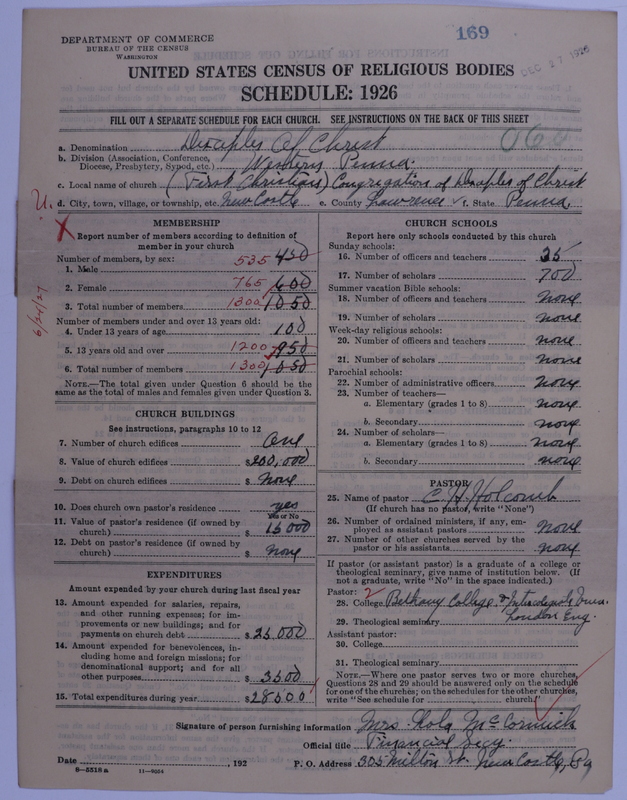 169
DEC 27 1926
DEPARTMENT OF COMMERCE
BUREAU OF THE CENSUS
WASHINGTON
UNITED STATES CENSUS OF RELIGIOUS BODIES
SCHEDULE: 1926
FILL OUT A SEPARATE SCHEDULE FOR EACH CHURCH. SEE INSTRUCTIONS ON THE BACK OF THIS SHEET
060
a. Denomination Disciples Of Christ
b. Division (Association, Conference,
Diocese, Presbytery, Synod, etc.) Western Penna.
c. Local name of church (First Christian) Congregation of Disciples of Christ
d. City, town, village, or township, etc. New Castle e. County Lawrence f. State Penna.
U.
X
6/24/27
MEMBERSHIP
Report number of members according to definition of
member in your church
Number of members, by sex:
1. Male 535 450
2. Female 765 600
3. Total number of members 1300 1050
Number of members under and over 13 years old:
4. Under 13 years of age 100
5. 13 years old and over 1200 950
6. Total number of members 1300 1050
NOTE.—The total given under Question 6 should be the
same as the total of males and females given under Question 3.
CHURCH BUILDINGS
See instructions, paragraphs 10 to 12
7. Number of church edifices One
8. Value of church edifices $200,000
9. Debt on church edifices $ None
10. Does church own pastor's residence? yes
Yes or No
11. Value of pastor's residence (if owned by
church) $ 15000
12. Debt on pastor's residence (if owned by
church) $ none
EXPENDITURES
Amount expended by your church during last fiscal year
13. Amount expended for salaries, repairs,
and other running expenses; for im-
provements or new buildings; and for
payments on church debt $25,000
14. Amount expended for benevolences, in-
cluding home and foreign missions; for
denominational support; and for all
other purposes $ 3500
15. Total expenditures during year $28500
CHURCH SCHOOLS
Report here only schools conducted by this church
Sunday schools:
16. Number of officers and teachers 35
17. Number of scholars 700
Summer vacation Bible schools:
18. Number of officers and teachers none
19. Number of scholars none
Week-day religious schools:
20. Number of officers and teachers none
21. Number of scholars none
Parochial schools:
22. Number of administrative officers none
23. Number of teachers—
a. Elementary (grades 1 to 8) none
b. Secondary none
24. Number of scholars—
a. Elementary (grades 1 to 8) none
b. Secondary none
PASTOR
25. Name of pastor C. H. Holcomb
(If church has no pastor, write "None")
26. Number of ordained ministers, if any, em-
ployed as assistant pastors none
27. Number of other churches served by the
pastor or his assistants none
If pastor (or assistant pastor) is a graduate of a college or
theological seminary, give name of institution below. (If
not a graduate, write "No" in the space indicated.)
Pastor: 2
28. College Bethany College, &
29. Theological seminary London Eng.
Assistant pastor:
30. College
31. Theological seminary
NOTE.—Where one pastor serves two or more churches,
Questions 28 and 29 should be answered only on the schedule
for one of the churches; on the schedules for the other churches,
write "See schedule for church."
Signature of person furnishing information Mrs. Lola McCormick
Official title Financial Secy
Date , 192 P. O. Address 305 Milton St. New Castle, Pa
8—5518a 11—9054